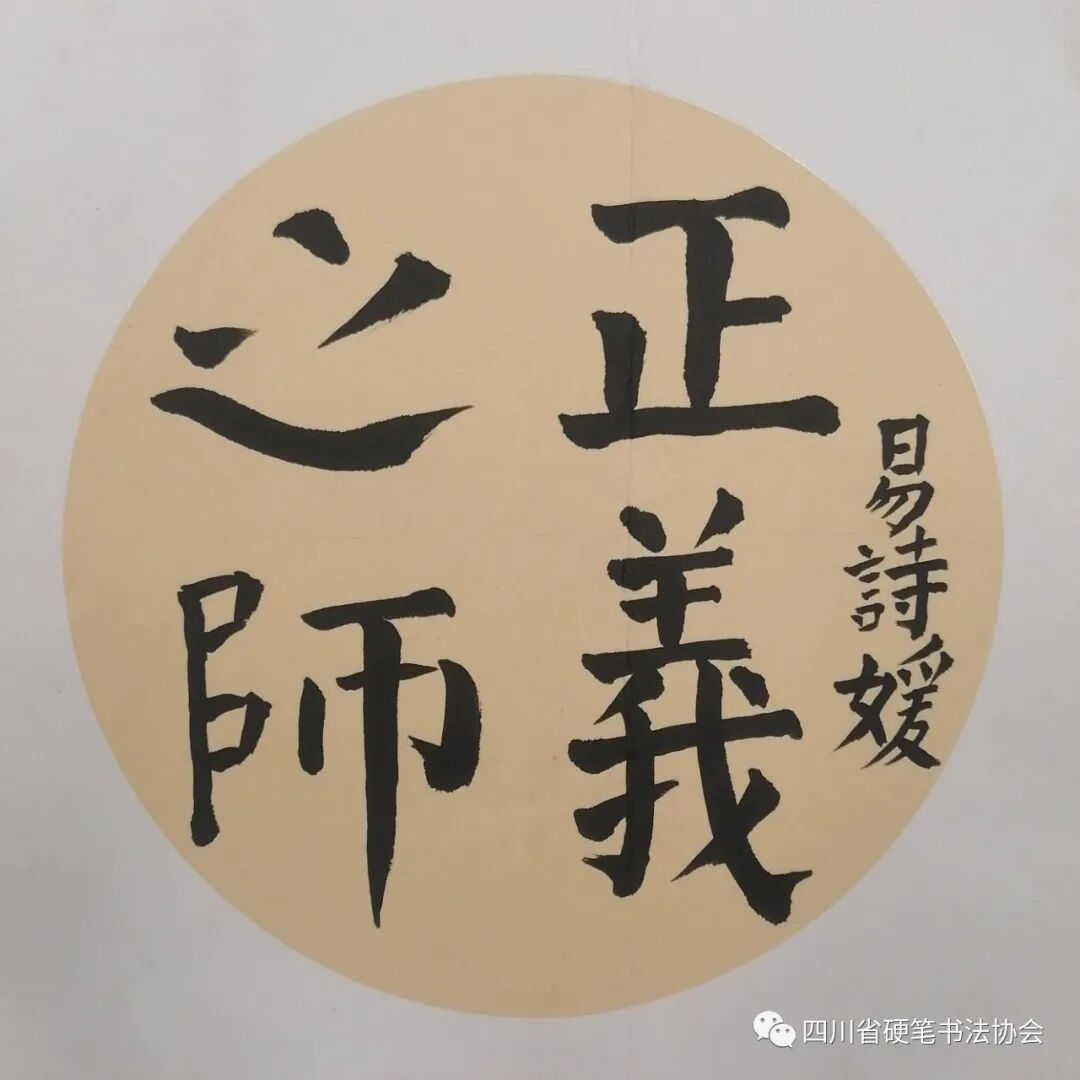 正義
之師
易詩媛
四川省硬笔书法协会